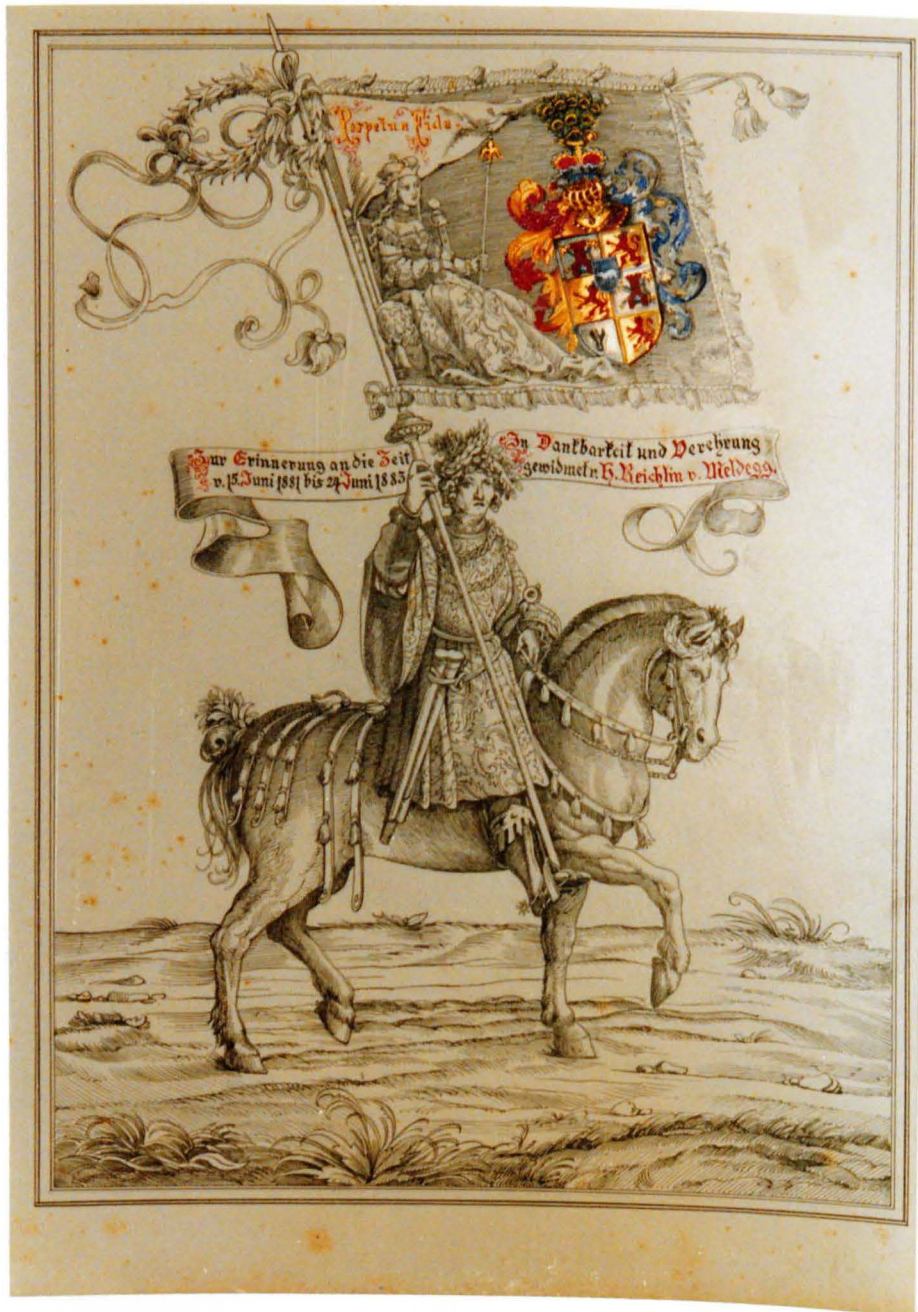 Perpetua Fide.
Zur Erinnerung an die Zeit
v. 15. Juni 1881 bis 24. Juni 1883
In Dankbarkeit und Verehrung
gewidmet v. H. Reichlin v. Meldegg.